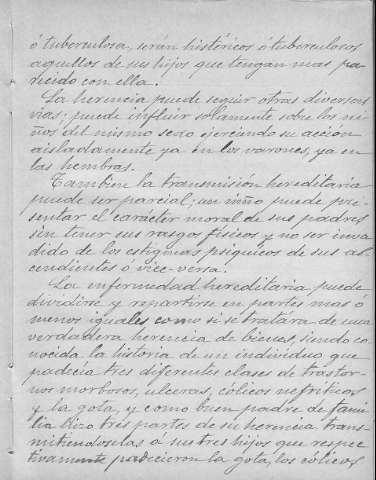 ó tuberculosa, serán históricos ó tuberculosos
aquellos de sus hijos que tengan mas pa-
recido con ella.
La herencia puede seguir otras diversas
vias; puede influir solamente sobre los ni-
ños del mismo sexo ejerciendo su acción
aisladamente ya en los varones, ya en
las hembras.
Tambien la transmisión hereditaria
puede ser parcial; un niño puede pre-
sentar el carácter moral de sus padres
sin tener sus rasgos físicos y no ser inva-
dido de los estigmas psiquicos de sus as-
cendientes o vice-versa.
La enfermedad hereditaria puede
dividirse y repartirse en partes mas ó
menos iguales como si se tratára de una
verdadera herencia de bienes, siendo co-
nocida la historia de un individuo que
padecia tres diferentes clases de trastor-
nos morbosos, ulceras, cólicos nefríticos
y la gota, y como buen padre de fami-
lia hizo tres partes de su herencia trans-
mitiendoselas á sus tres hijos que respec-
tivamente padecieron la gota, los cólicos